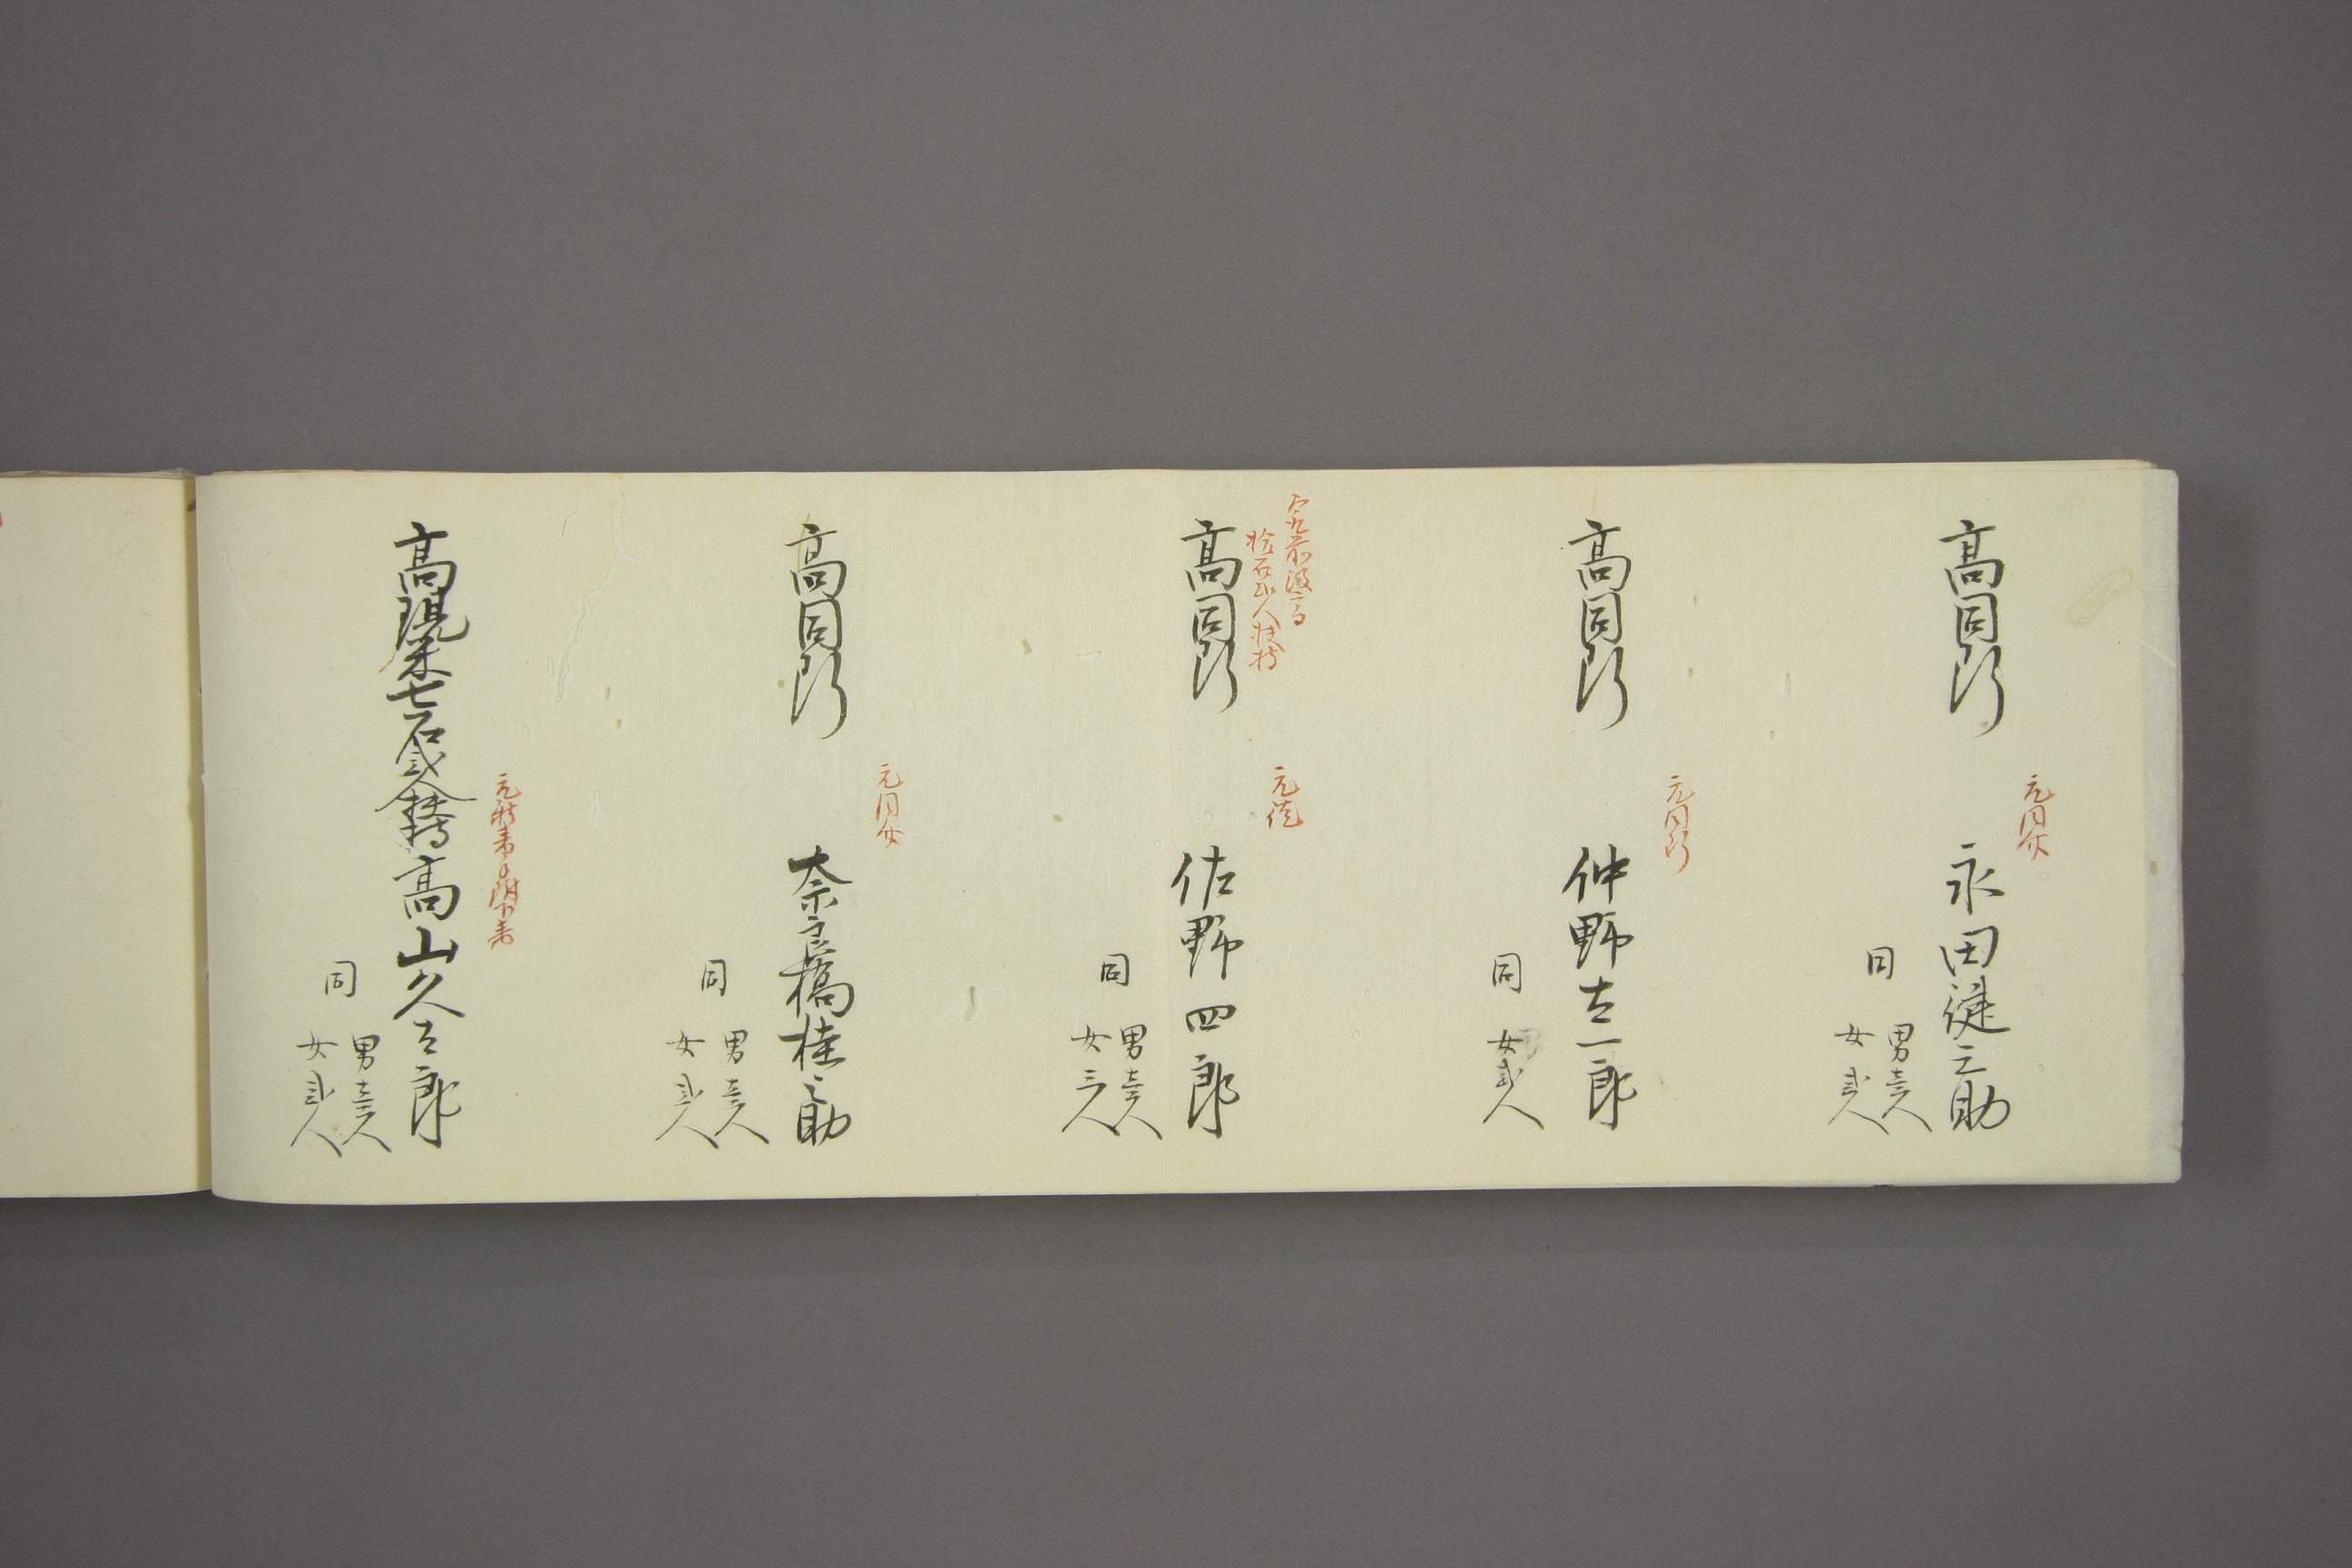 高同断
元同女
永田健之助
同
男壱人
女弐人
高同断
元同断
仲野左一郎
同
女弐人
拾石弐人扶持
高同断
元徒
佐野四郎
同
男壱人
女三人
高同断
元同女
奈良橋桂之助
同
男壱人
女弐人
高現米七石弐人扶持
高山久五郎
同
男壱人
女弐人